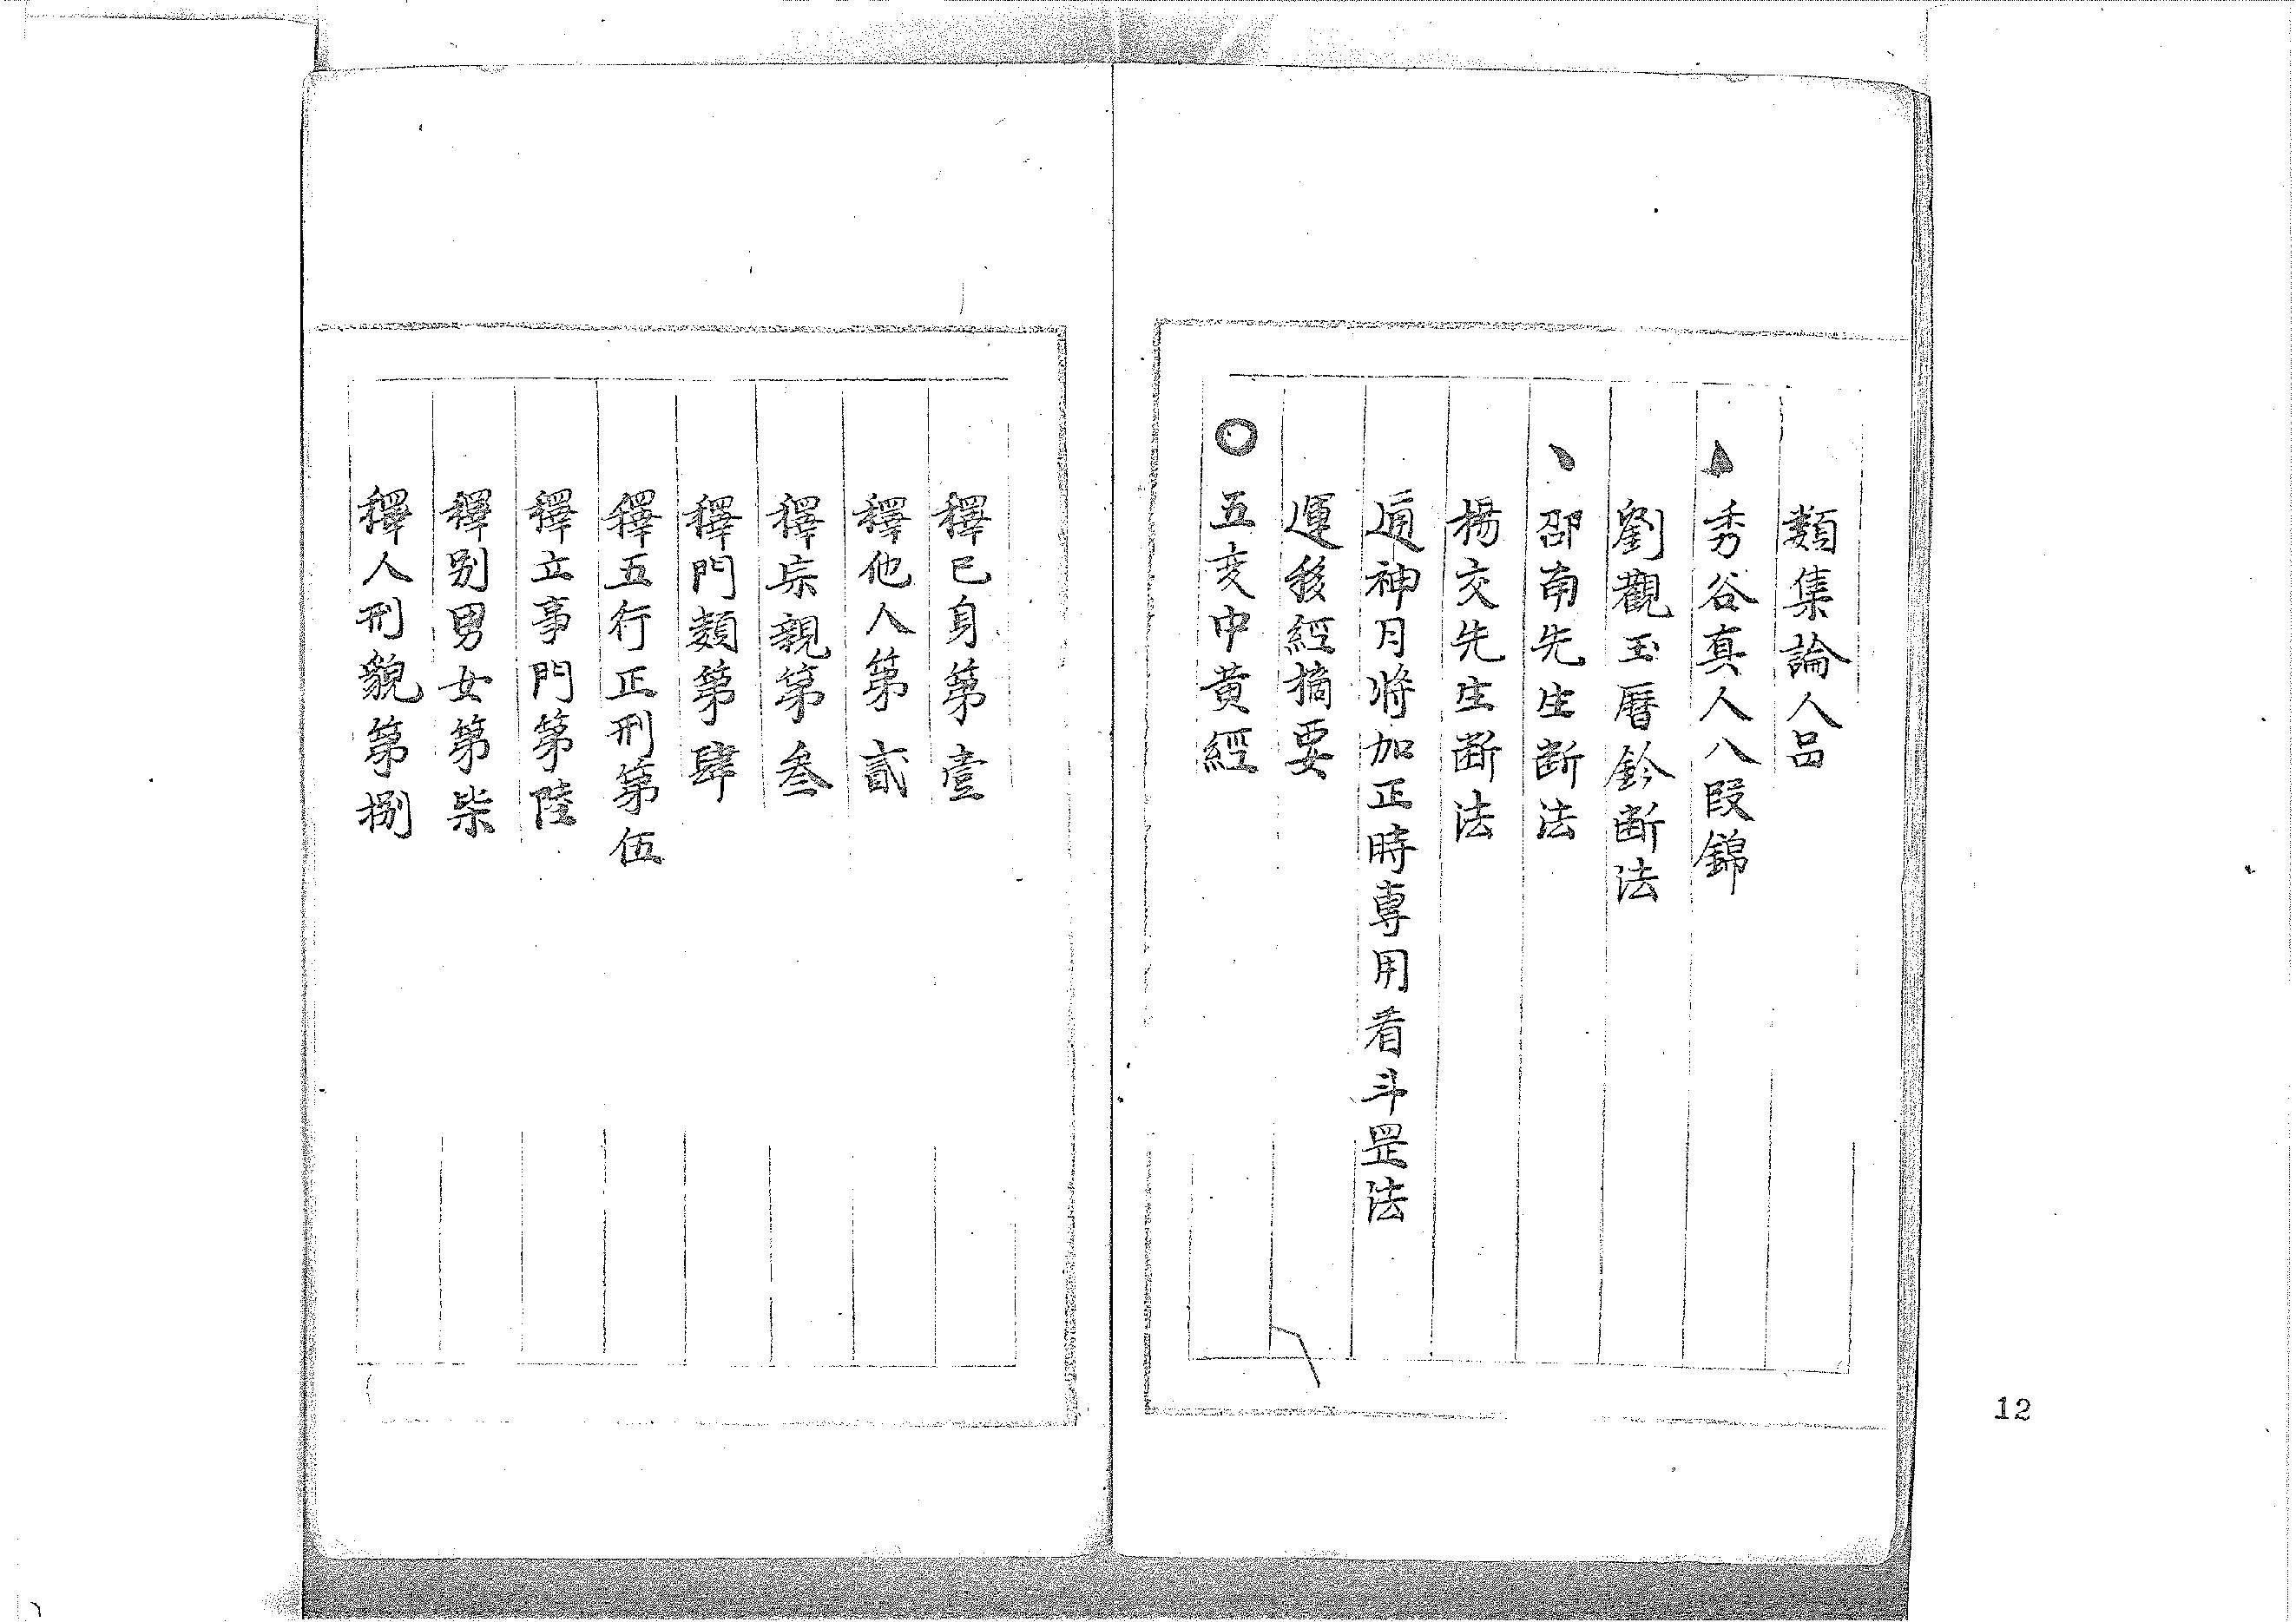 類集論人品
秀谷真人八段錦
劉觀玉曆鈐断法
邵南先生断法
楊交先生断法
通神月將加正時専用看斗罡法
運移經摘要
五变中黄經
釋已身第壹
釋他人第貳
釋宗親第叁
釋門類第肆
釋五行正刑第伍
釋立事門第陸
釋别男女第柒
釋人刑貌第捌
12